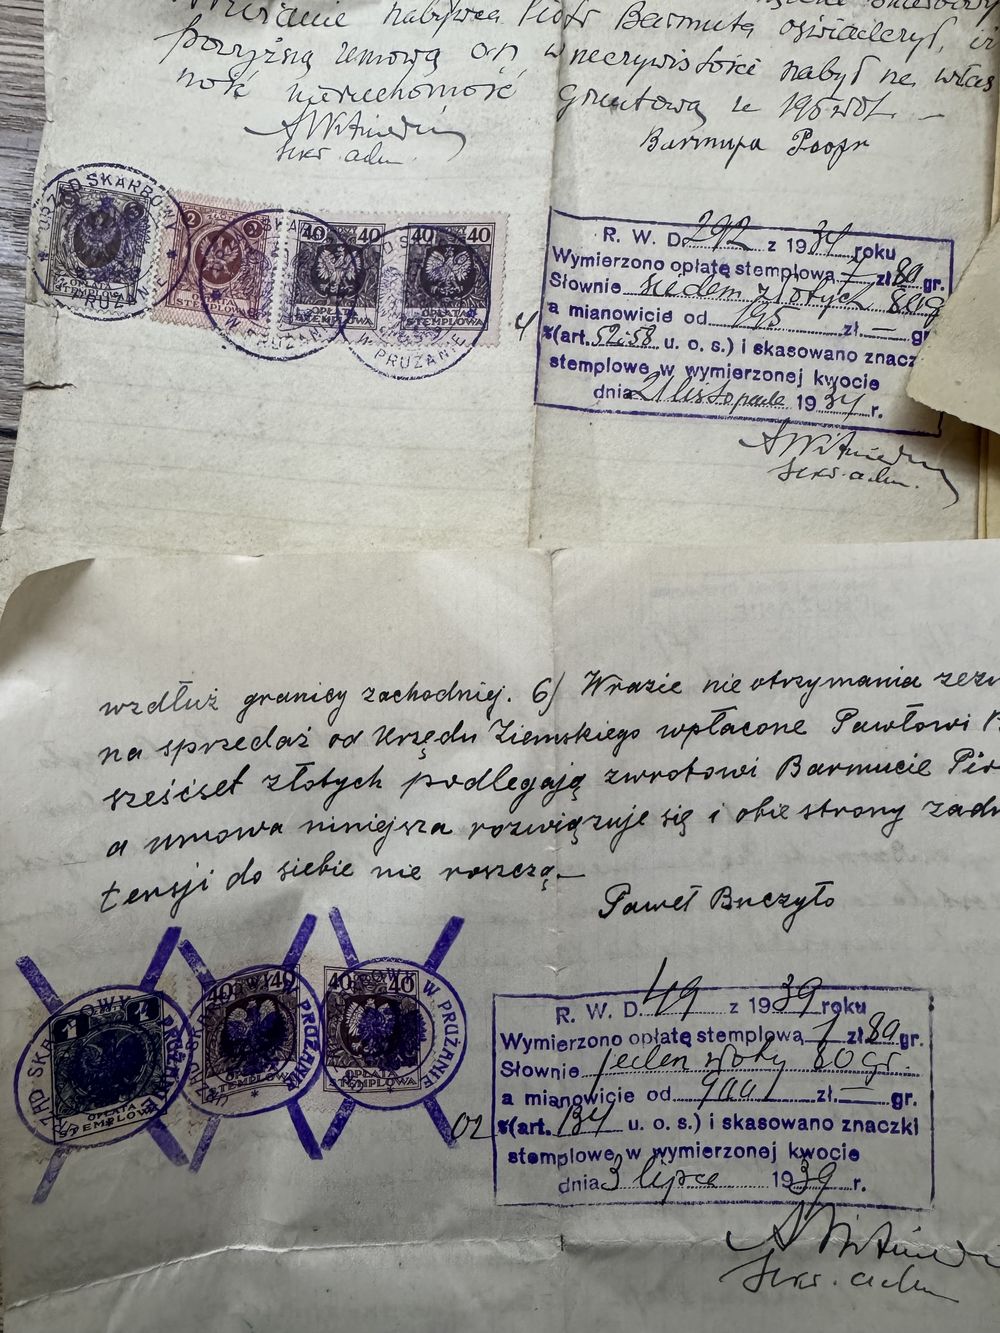 nabywca Piotr Barmuta oświadczył, iż
powyższą umową on w rzeczywistości nabył na włas
ność nieruchomość gruntową za 195 zł.
Sekr. adm.
Barmuta Piotr
URZĄD SKARBOWY W PRUŻANIE
5
OPŁATA
STEMPLOWA
2 2
40 40
OPŁATA
STEMPLOWA
40 40
OPŁATA
STEMPLOWA
W PRUŻANIE
W PRUŻANIE
R. W. D. 292 z 1934 roku
Wymierzono opłatę stemplową 7 zł 80 gr.
Słownie siedem złotych 80 g
a mianowicie od 195 zł — gr
4 %(art. 52 i 58 u. o. s.) i skasowano znaczk
stemplowe w wymierzonej kwocie
dnia 21 listopada 1934 r.
Sekr. adm.
wzdłuż granicy zachodniej. 6/ Wrazie nie otrzymania zezw
na sprzedaż od Urzędu Ziemskiego wpłacone Pawłowi B
sześćset złotych podlegają zwrotowi Barmucie Pio
a umowa niniejsza rozwiązuje się i obie strony żadn
tensji do siebie nie roszczą.—
Paweł Buczyło
1 1
OPŁATA
STEMPLOWA
40 40
OPŁATA
STEMPLOWA
40 40
OPŁATA
STEMPLOWA
W PRUŻANIE
R. W. D. 49 z 1939 roku
Wymierzono opłatę stemplową 1 zł 80 gr.
Słownie jeden złoty 80 gr.
a mianowicie od 900 zł — gr.
02 %(art. 134 u. o. s.) i skasowano znaczki
stemplowe w wymierzonej kwocie
dnia 3 lipca 1939 r.
Sekr. adm.